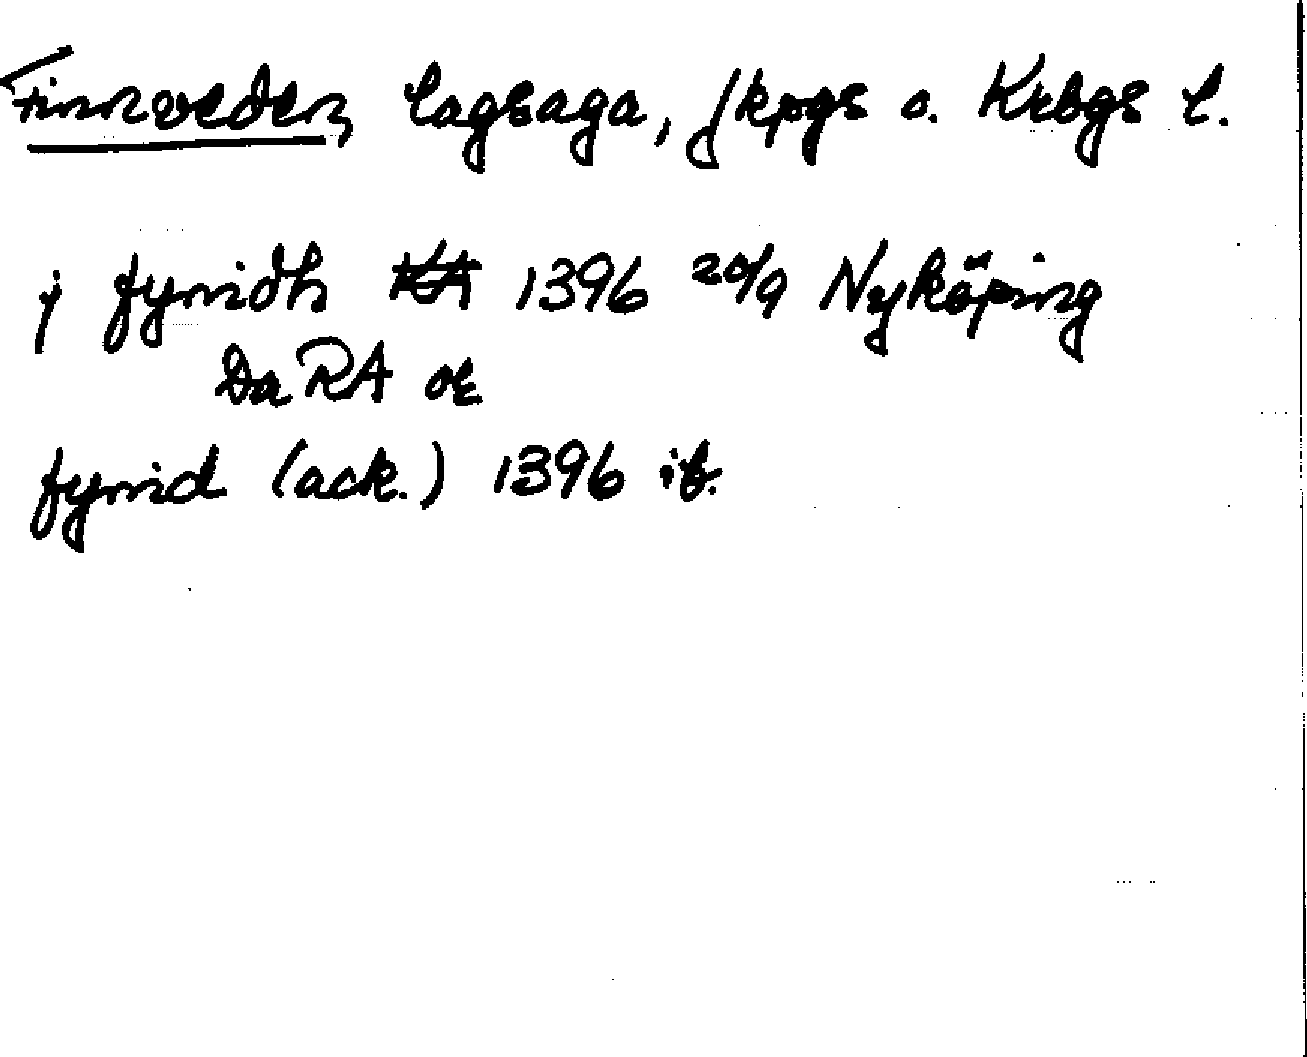 Finnveden, lagsaga, Jkpgs o. Krbgs l.
j fynidh 1396 20/9 Nyköping
Da RA or
fynid (ack.) 1396 ib.